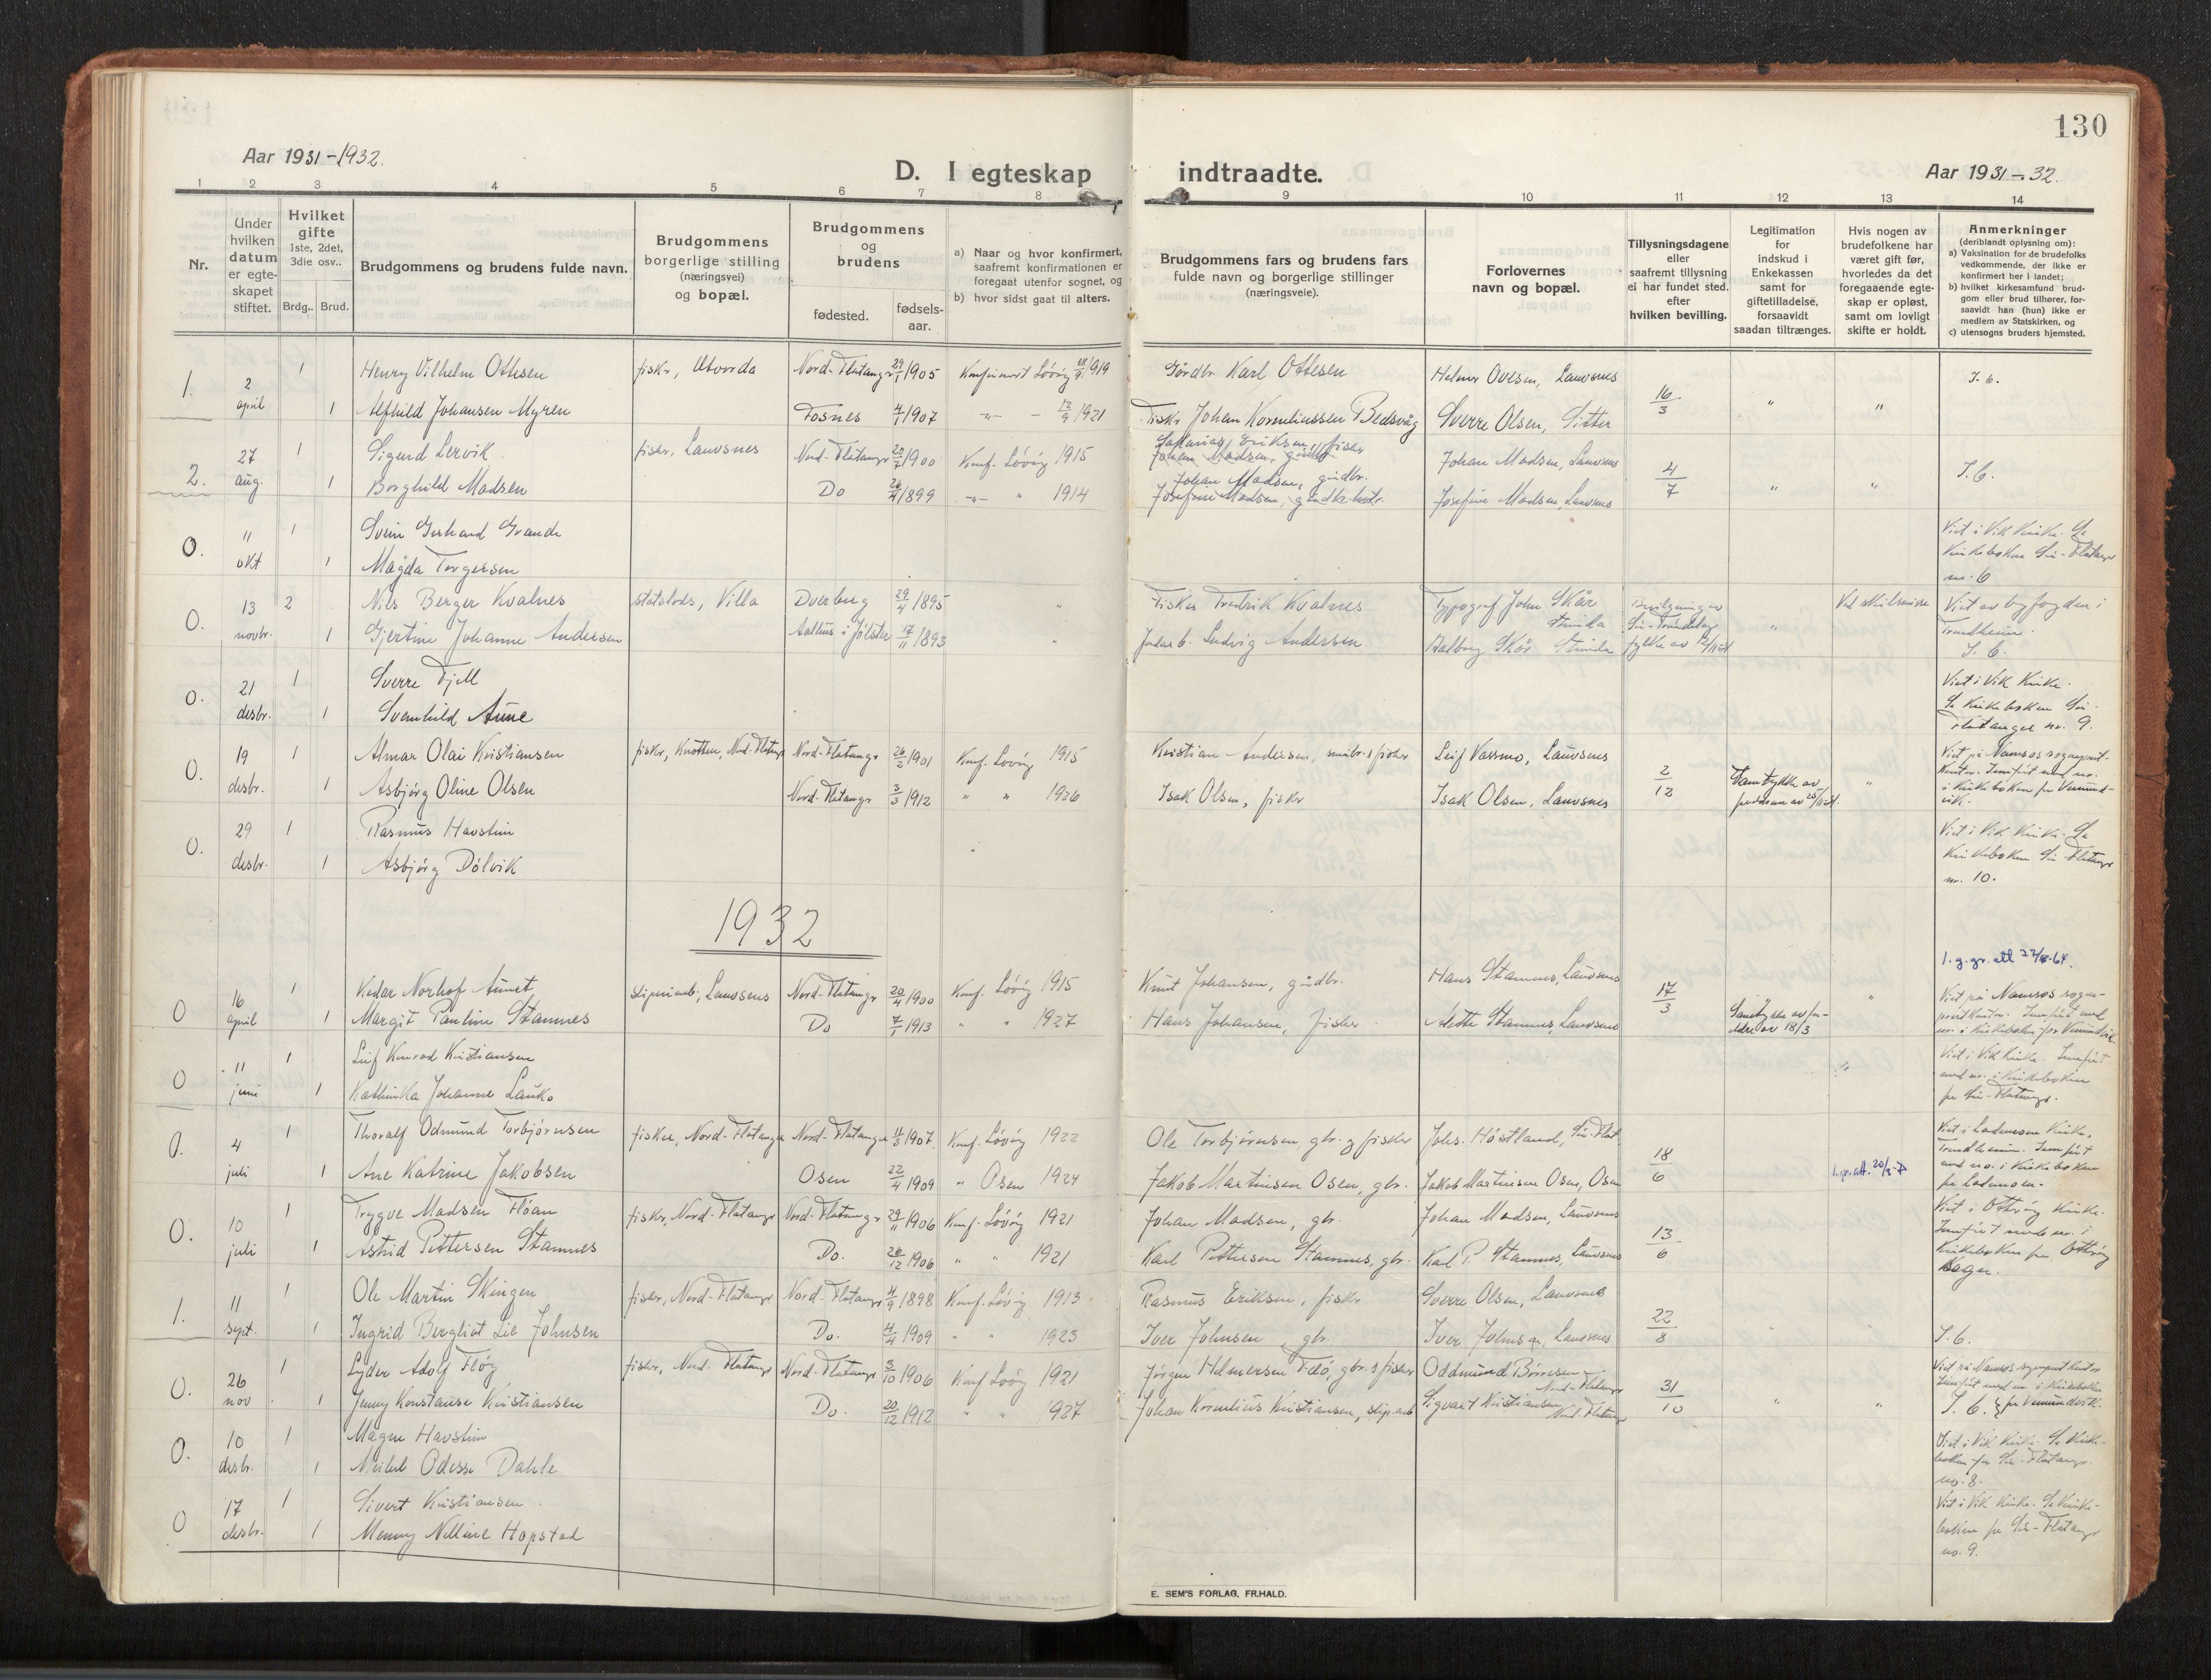 130
Aar 1931-1932.
D. I egteskap indtraadte.
Aar 1931-32.
1 2 3 4 5 6 7 8 9 10 11 12 13 14
Nr.
Under hvilken datum er egteskapet stiftet.
Hvilket gifte 1ste, 2det, 3die osv..
Brdg.. Brud.
Brudgommens og brudens fulde navn.
Brudgommens borgerlige stilling (næringsvei) og bopæl.
Brudgommens og brudens
fødested.
fødsels-aar.
a) Naar og hvor konfirmert, saafremt konfirmationen er foregaat utenfor sognet, og
b) hvor sidst gaat til alters.
Brudgommens fars og brudens fars fulde navn og borgerlige stillinger (næringsveie).
Forlovernes navn og bopæl.
Tillysningsdagene eller saafremt tillysning ei har fundet sted. efter hvilken bevilling.
Legitimation for indskud i Enkekassen samt for giftetilladelse, forsaavidt saadan tiltrænges.
Hvis nogen av brudefolkene har været gift før, hvorledes da det foregaaende egteskap er opløst, samt om lovligt skifte er holdt.
Anmerkninger (deriblandt oplysning om):
a) Vaksination for de brudefolks vedkommende, der ikke er konfirmert her i landet;
b) hvilket kirkesamfund brudgom eller brud tilhører, forsaavidt han (hun) ikke er medlem av Statskirken, og
c) utensogns bruders hjemsted.
1. 2 april 1 Henry Vilhelm Ottesen fisker, Utvorda Nord-Flatanger 29/1 1905 Konfirmert Løvøy 1919 Gårdbr. Karl Ottesen Helmer Ovesen, Lauvsnes 16/3 " " I. 6.
1 Alfhild Johansen Myren Fosnes 4/7 1907 -"- 1921 Fisker Johan Korneliussen Bedsvåg Sverre Olsen, Sitter
2. 27 aug. 1 Sigurd Lervik fisker, Lauvsnes Nord-Flatanger 20/7 1900 Konf. Løvøy 1915 Sakarias Eriksen, fisker Johan Madsen, Lauvsnes 4/7 " " I. 6.
1 Borghild Madsen Do 26/4 1899 -"- " 1914 Johan Madsen, gårdbr. Josefine Madsen, Lauvsnes
O. 11 okt 1 Svein Gerhard Grande Viet i Vik kirke. Se kirkeboken Sør-Flatanger nr. 6
1 Magda Torgersen
O. 13 novbr. 2 Nils Berger Kvalnes statslods, Villa Dverberg 29/4 1895 " Fisker Fredrik Kvalnes Typograf John Skår Strinda " Ved skilsmisse Viet av byfogden i Trondheim. I. 6.
1 Gjertine Johanne Andersen Aalhus i Jølster 17/11 1893 Ludvig Andersen Aalborg Skår Strinda
O. 21 desbr. 1 Sverre Fjell Viet i Vik kirke. Se kirkeboken Sør-Flatanger nr. 9.
1 Svanhild Aune
O. 19 desbr. 1 Almar Olai Kristiansen fisker, Knotten, Nord-Flatanger Nord-Flatanger 26/2 1901 Konf. Løvøy 1915 Kristian Andersen, småbr. & fisker Leif Vassmo, Lauvsnes 2/12 Samtykke av " Viet på Namsos sogneprest-kontor. Innført med nr. i kirkeboken for Vemundvik.
1 Asbjørg Oline Olsen Nord-Flatanger 3/3 1912 " " 1926 Isak Olsen, fisker Isak Olsen, Lauvsnes
O. 29 desbr. 1 Rasmus Havstein Viet i Vik kirke. Se kirkeboken Sør-Flatanger nr. 10.
1 Asbjørg Dølvik
1932
1.g.gr.att 22/8-64.
O 16 april 1 Kedar Norhof Aunet slipariarb., Lauvsnes Nord-Flatanger 20/4 1900 Konf. Løvøy 1915 Knut Johansen, gårdbr. Hans Stamnes, Lauvsnes 17/3 Samtykke av foreldre av 18/3 " Viet på Namsos sogneprestkontor. Innført med nr. i kirkeboken for Vemundvik.
1 Margit Pauline Stamnes Do 7/1 1913 " " 1927 Hans Johansen, fisker Stamnes, Lauvsnes
O 11 juni 1 Leif Konrad Kristiansen Viet i Vik kirke. Innført med nr. i kirkeboken for Sør-Flatanger.
1 Kathinka Johanne Lauko
O. 4 juli 1 Thoralf Odmund Torbjørnsen fisker, Nord-Flatanger Nord-Flatanger 11/3 1907. Konf. Løvøy 1922 Ole Torbjørnsen, gbr. og fisker Johs. Høstland, Sør-Flat. 18/6 1.gr.att. Viet i Lademoen kirke, Trondheim. Innført med nr. i kirkeboken for Lademoen.
1 Ane Katrine Jakobsen Osen 22/4 1909 " Osen 1924 Jakob Martinsen Osen, gbr. Jakob Martinsen Osen, Osen
O. 10 juli 1 Trygve Madsen Fløan fisker, Nord-Flatanger Nord-Flatanger 29/11 1906 Konf. Løvøy 1921 Johan Madsen, gbr. Johan Madsen, Lauvsnes 13/6 Viet i Otterøy kirke. Innført med nr. i kirkeboken for Otterøy sogn.
1 Astrid Pettersen Stamnes Do. 26/12 1906 " " 1921 Karl Pettersen Stamnes, gbr. Karl P. Stamnes, Lauvsnes
1. 11 sept. 1 Ole Martin Skingen fisker, Nord-Flatanger Nord-Flatanger 4/9 1898 Konf. Løvøy 1913 Rasmus Eriksen, fisker Sverre Olsen, Lauvsnes 22/8 " " I. 6.
1 Ingrid Bergliot Lie Johnsen Do. 4/4 1909 " " 1923 Iver Johnsen, gbr. Iver Johnsen, Lauvsnes
O. 26 nov. 1 Lyder Adolf Fløy fisker, Nord-Flatanger Nord-Flatanger 3/10 1906 Konf Løvøy 1921 Jørgen Helmersen gbr. & fisker Oddmund Børresen Nord-Flatanger 31/10 " " Viet på Namsos sogneprestkontor Innført med nr i kirkeboken for Vemundvik. I. 6.
1 Jenny Konstanse Kristiansen Do. 20/12 1912 " " 1927 Johan Kornelius Kristiansen, slip.arb Sigvart Kristiansen Nord-Flatanger
O. 10 desbr. 1 Magne Havstein Viet i Vik kirke. Se kirkeboken for Sør-Flatanger no. 8.
1 Odessa Dahle
O 17 desbr. 1 Sivert Kristiansen Viet i Vik kirke. Se kirkeboken for Sør-Flatanger no. 9.
1 Menny Nelline Hopstad
E. SEM'S FORLAG, FR.HALD.